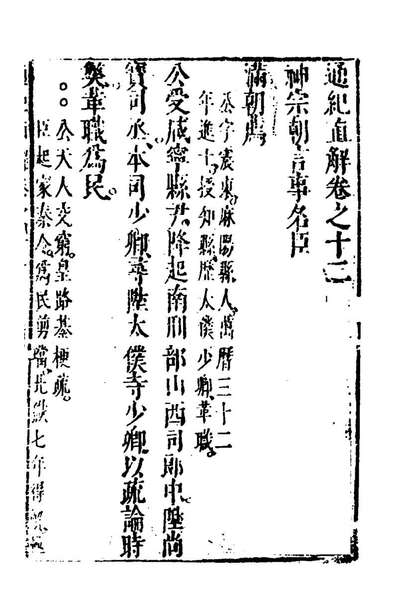 通紀直解卷之十三
神宗朝言事名臣
滿朝薦
公字震東麻陽縣人萬曆三十二
年進士授知縣歷太僕少卿革職
公受咸寧縣尹降起南刑部山西司郎中陞尚
寶司丞本司少卿尋陞太僕寺少卿以疏論時
獘革職爲民
。。公天人交窮皇路綦梗疏
臣起家秦令爲民剪璫北獄七年得